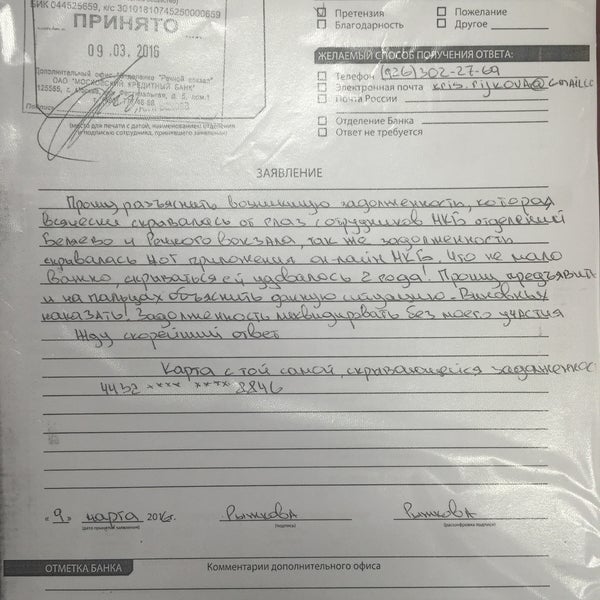 БИК 044525659, к/с 30101810745250000659
ПРИНЯТО
09.03.2016
Дополнительный офис-отделение "Речной вокзал"
ОАО "МОСКОВСКИЙ КРЕДИТНЫЙ БАНК"
125565, г.
(место для печати с датой, наименованием отделения
и подписью сотрудника, принявшего заявление)
Претензия
Пожелание
Благодарность
Другое
ЖЕЛАЕМЫЙ СПОСОБ ПОЛУЧЕНИЯ ОТВЕТА:
Телефон (926)302-27-69
Электронная почта kris.rijkova@gmail.co
Почта России
Отделение Банка
Ответ не требуется
ЗАЯВЛЕНИЕ
Прошу разъяснить возникшую задолженность, которая
всячески скрывалась от глаз сотрудников МКБ отделений
Беляево и Речного вокзала, так же задолженность
скрывалась и от приложения он-лайн МКБ. Что не мало
важно, скрываться ей удавалось 2 года! Прошу предъявить
и на пальцах объяснить данную ситуацию. Виновных
наказать! Задолженность ликвидировать без моего участия
Жду скорейший ответ
Карта с той самой, скрывающейся задолженнос
4432 **** **** 8846
«9» марта 2016г. Рыжкова Рыжкова
(дата принятия заявления) (подпись) (расшифровка подписи)
ОТМЕТКА БАНКА
Комментарии дополнительного офиса